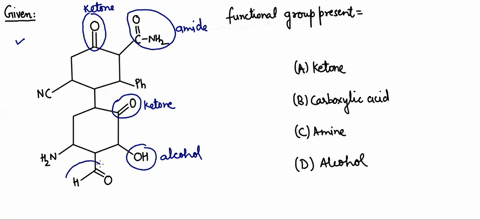 Given:
ketone
functional group present =
O
O
C-NH2
amide
NC
Ph
(A) Ketone
O
ketone
(B) Carboxylic acid
(C) Amine
H2N
OH
alcohol
(D) Alcohol
H
O